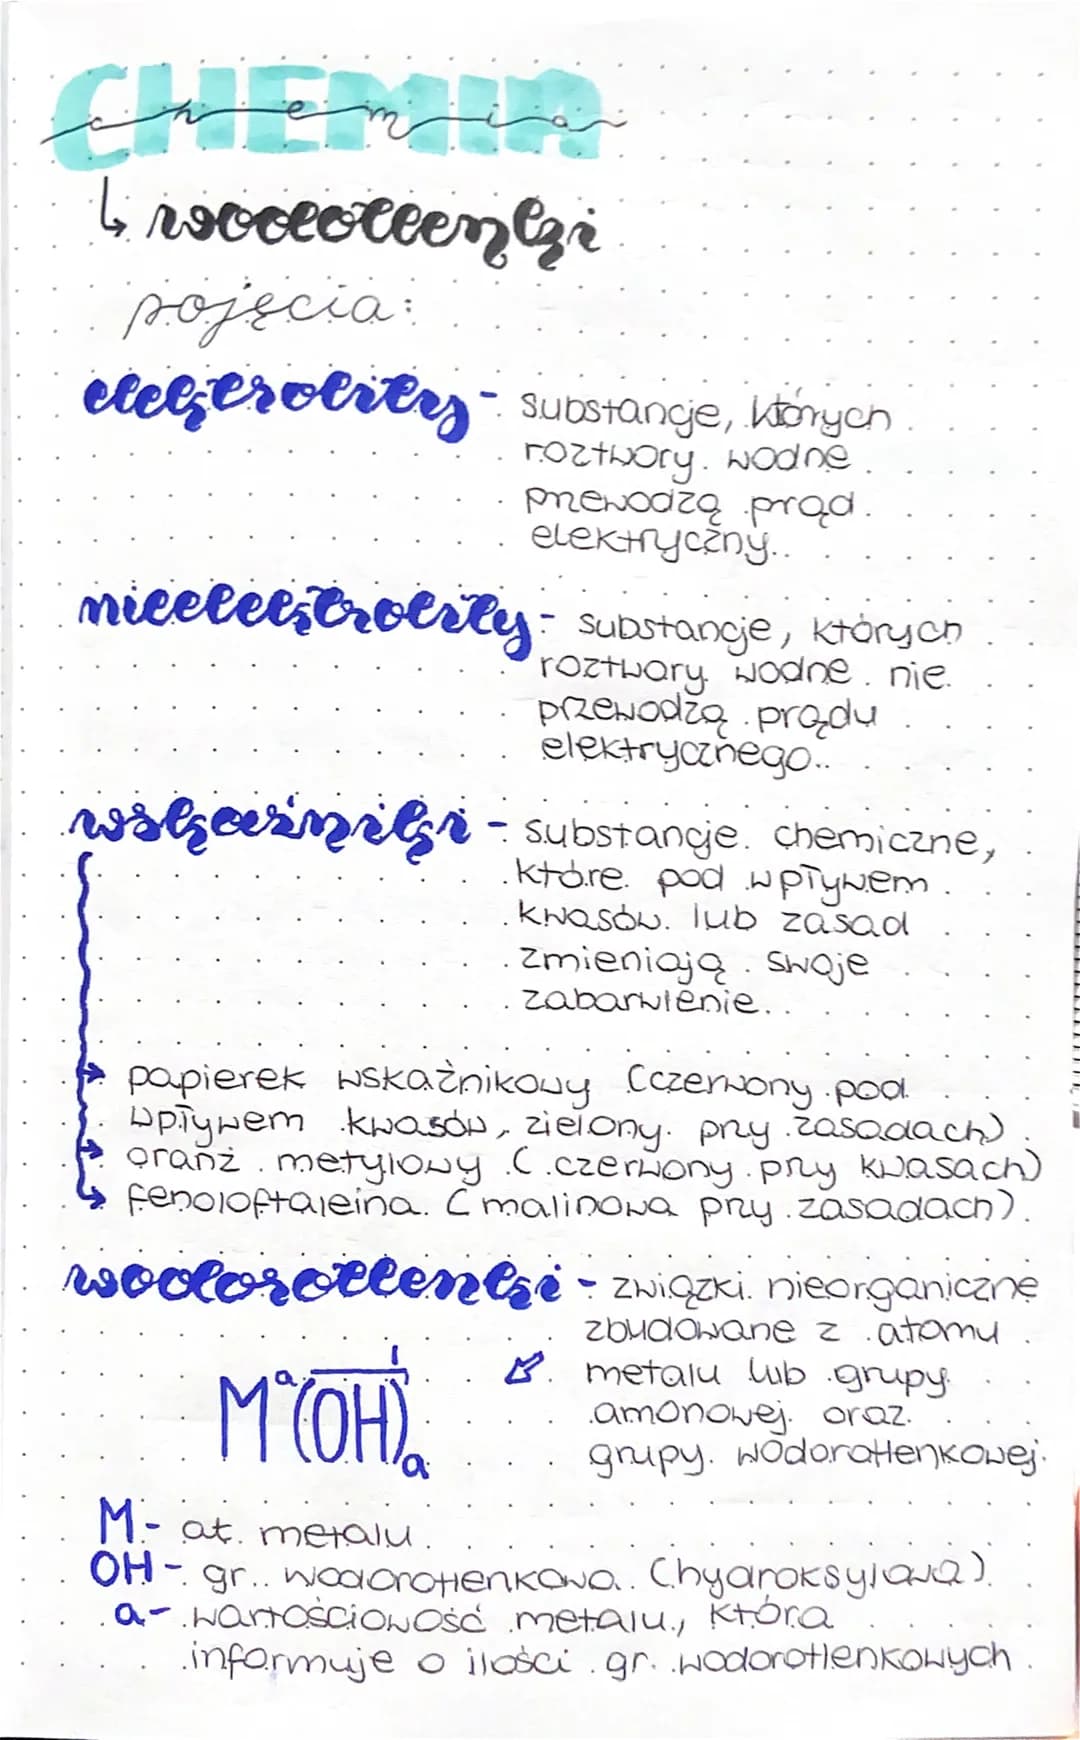 CHEMIA
chemia
↳ wodorotlenki
pojęcia:
elektrolity - substancje, których
roztwory wodne
przewodzą prąd
elektryczny.
nieelektrolity - substancje, których
roztwory wodne nie
przewodzą prądu
elektrycznego.
wskaźniki - substancje chemiczne,
które pod wpływem
kwasów lub zasad
zmieniają swoje
zabarwienie.
→ papierek wskaźnikowy (czerwony pod
wpływem kwasów, zielony przy zasadach)
→ oranż metylowy (czerwony przy kwasach)
→ fenoloftaleina (malinowa przy zasadach)
wodorotlenki - związki nieorganiczne
zbudowane z atomu
metalu lub grupy
amonowej oraz
grupy wodorotlenkowej
Mᵃ(OH)ᴵₐ
M - at. metalu
OH - gr. wodorotlenkowa (hydroksylowa)
a - wartościowość metalu, która
informuje o ilości gr. wodorotlenkowych